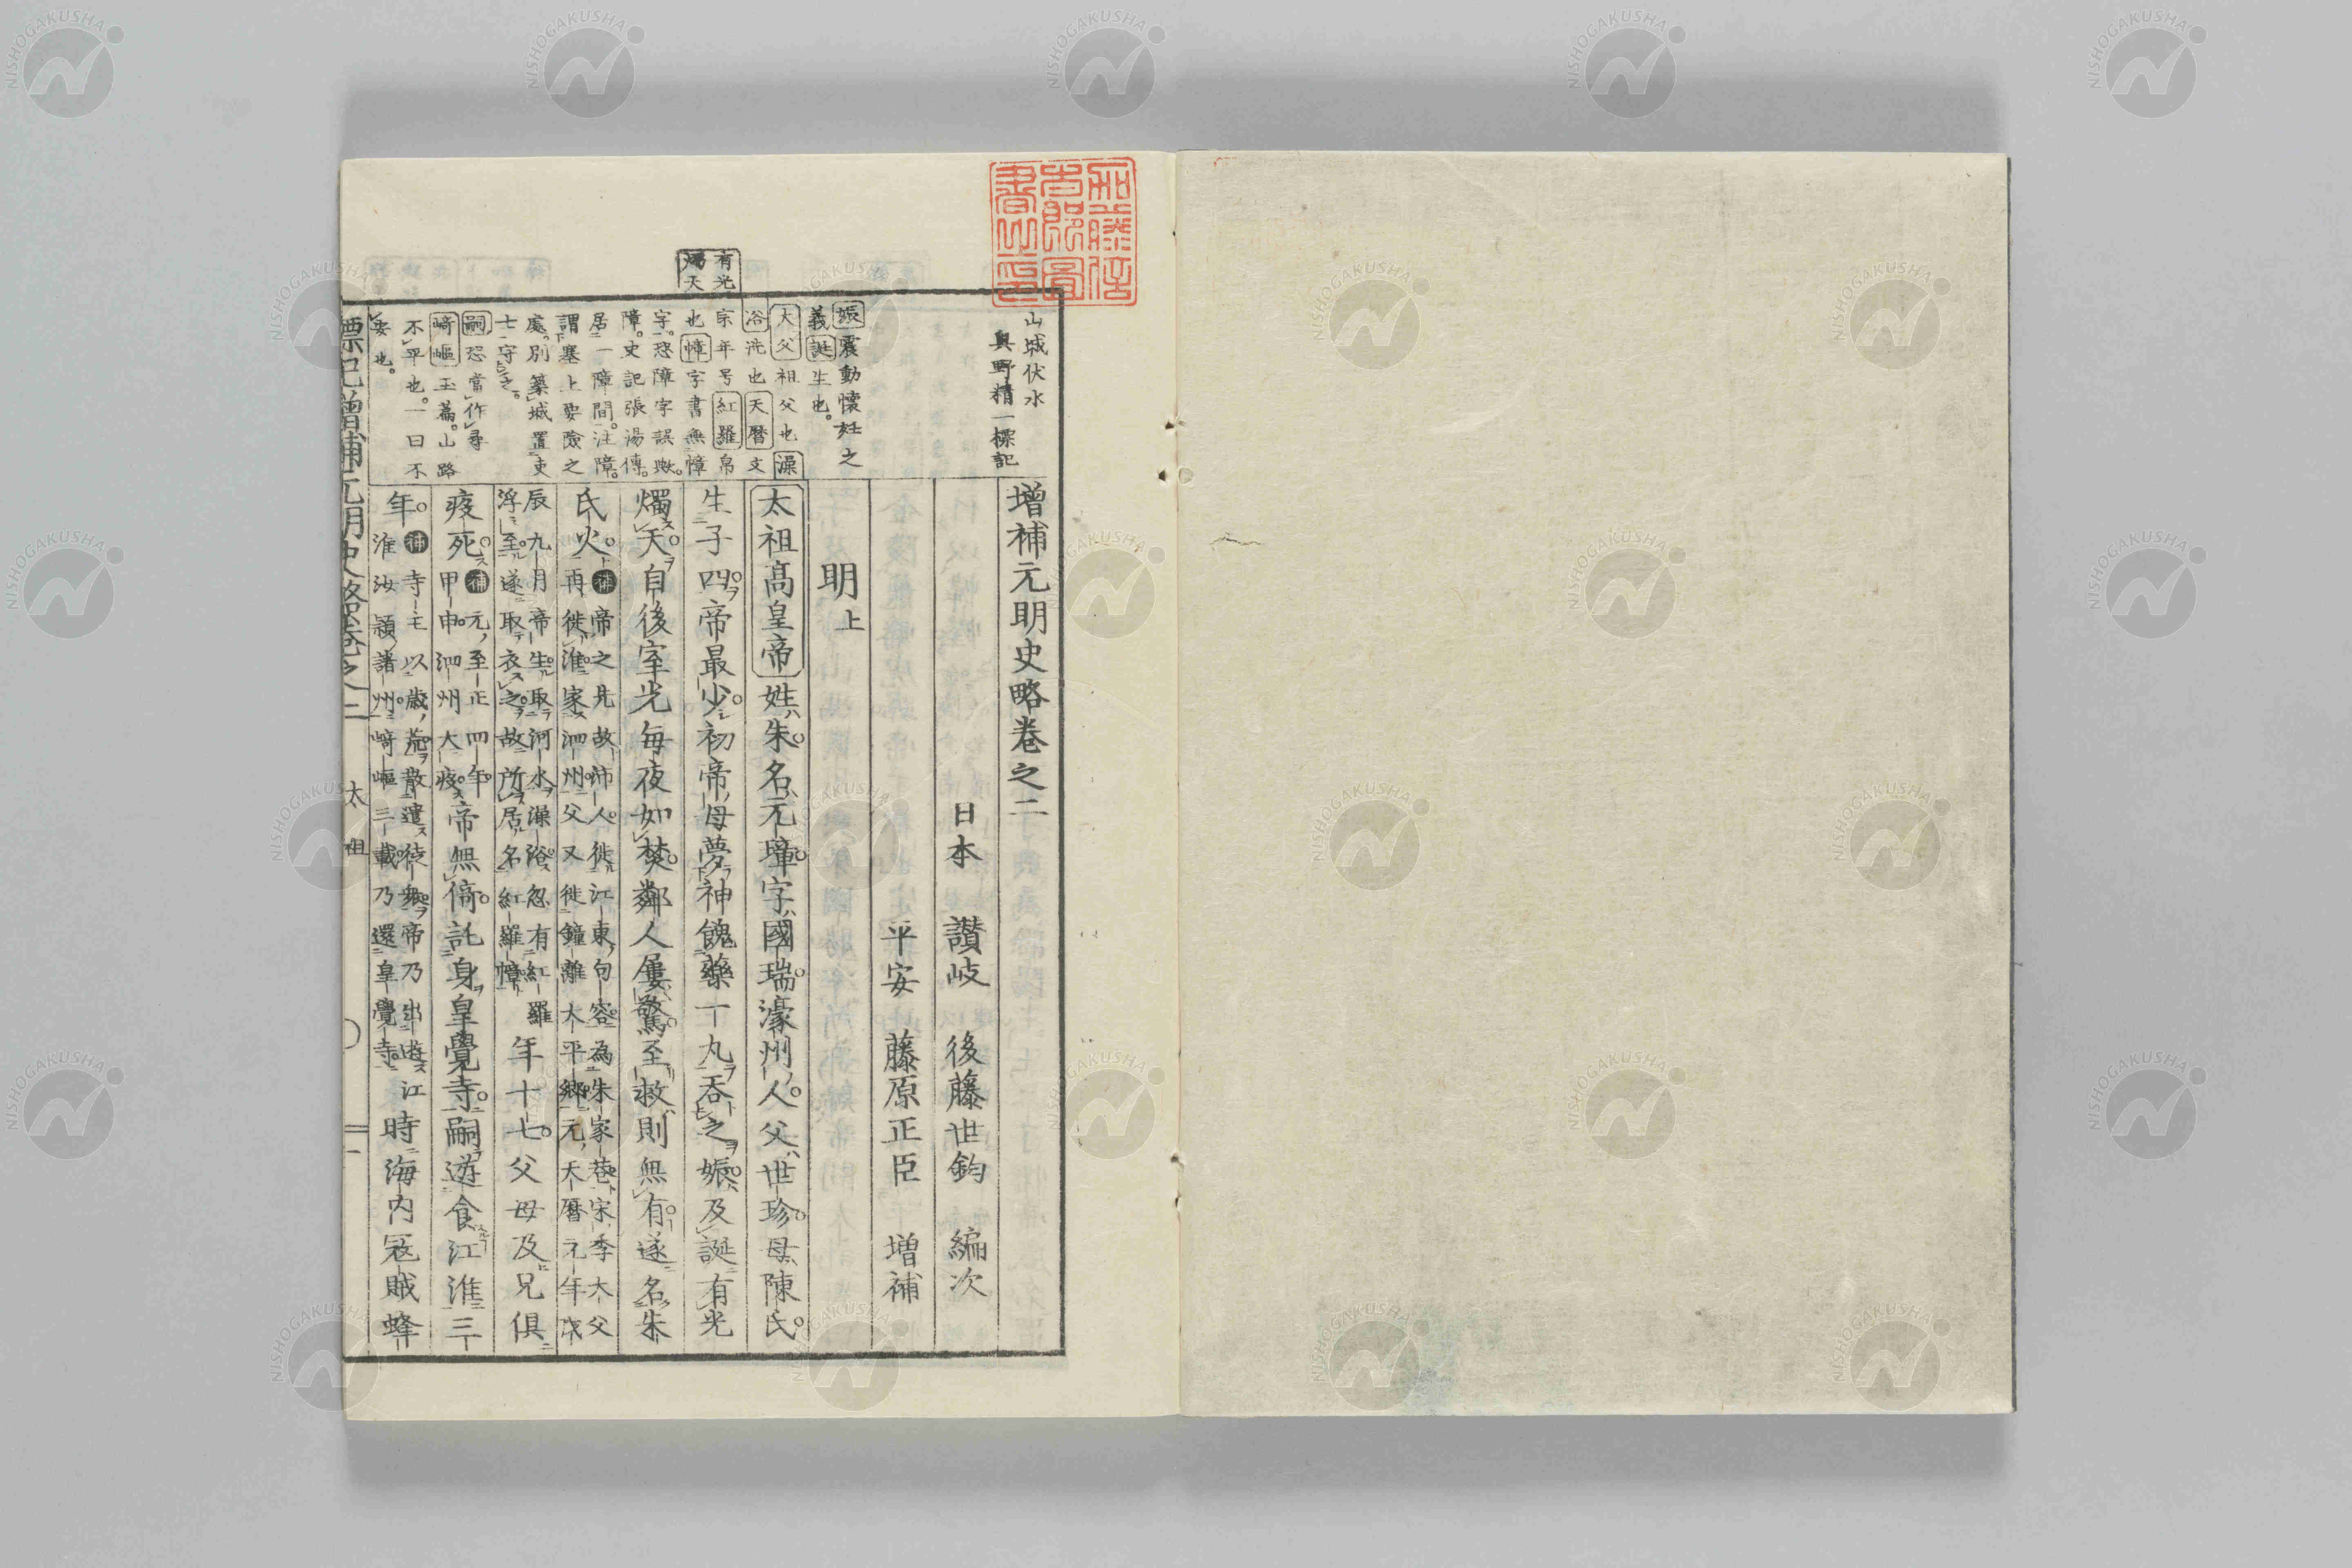 増補元明史略卷之二
日本 讃岐 後藤世鈞 編次
平安 藤原正臣 増補
明上
太祖髙皇帝姓朱名元璋字國瑞濠州人父世珍母陳氏
生子四帝最少初帝母夢神餽藥一丸呑之娠及誕有光
燭天自後室光毎夜如焚鄰人屢驚至救則無有遂名朱
氏火補帝之先故沛人徙江東句容為朱家巷宋季大父
再徙淮家泗州父又徙鐘離太平郷元天暦元年戊
辰九月帝生取河水澡浴忽有紅羅
浮至遂取衣之故所居名紅羅幛
年十七父母及兄俱
疫死補元至正四年
甲申泗州大疫
帝無倚託身皇覺寺嗣遊食江淮三
年補寺主以歳荒散遣徒衆帝乃出遊江
淮汝潁諸州崎嶇三載乃還皇覺寺
時海内冦賊蜂
山城伏水
奥野精一標記
娠震動懷妊之
義誕生也
大父祖父也澡
浴洗也天暦文
宗年号紅羅帛
也幛字書無幛
字恐障字誤歟
障史記張湯傳
居一障間注障
謂塞上要險之
處別築城置吏
士守之
嗣恐當作尋
崎嶇玉篇山路
不平也一曰不
安也
有光
燭天
標記増補元明史略卷之二 太祖 一
NISHOGAKUSHA